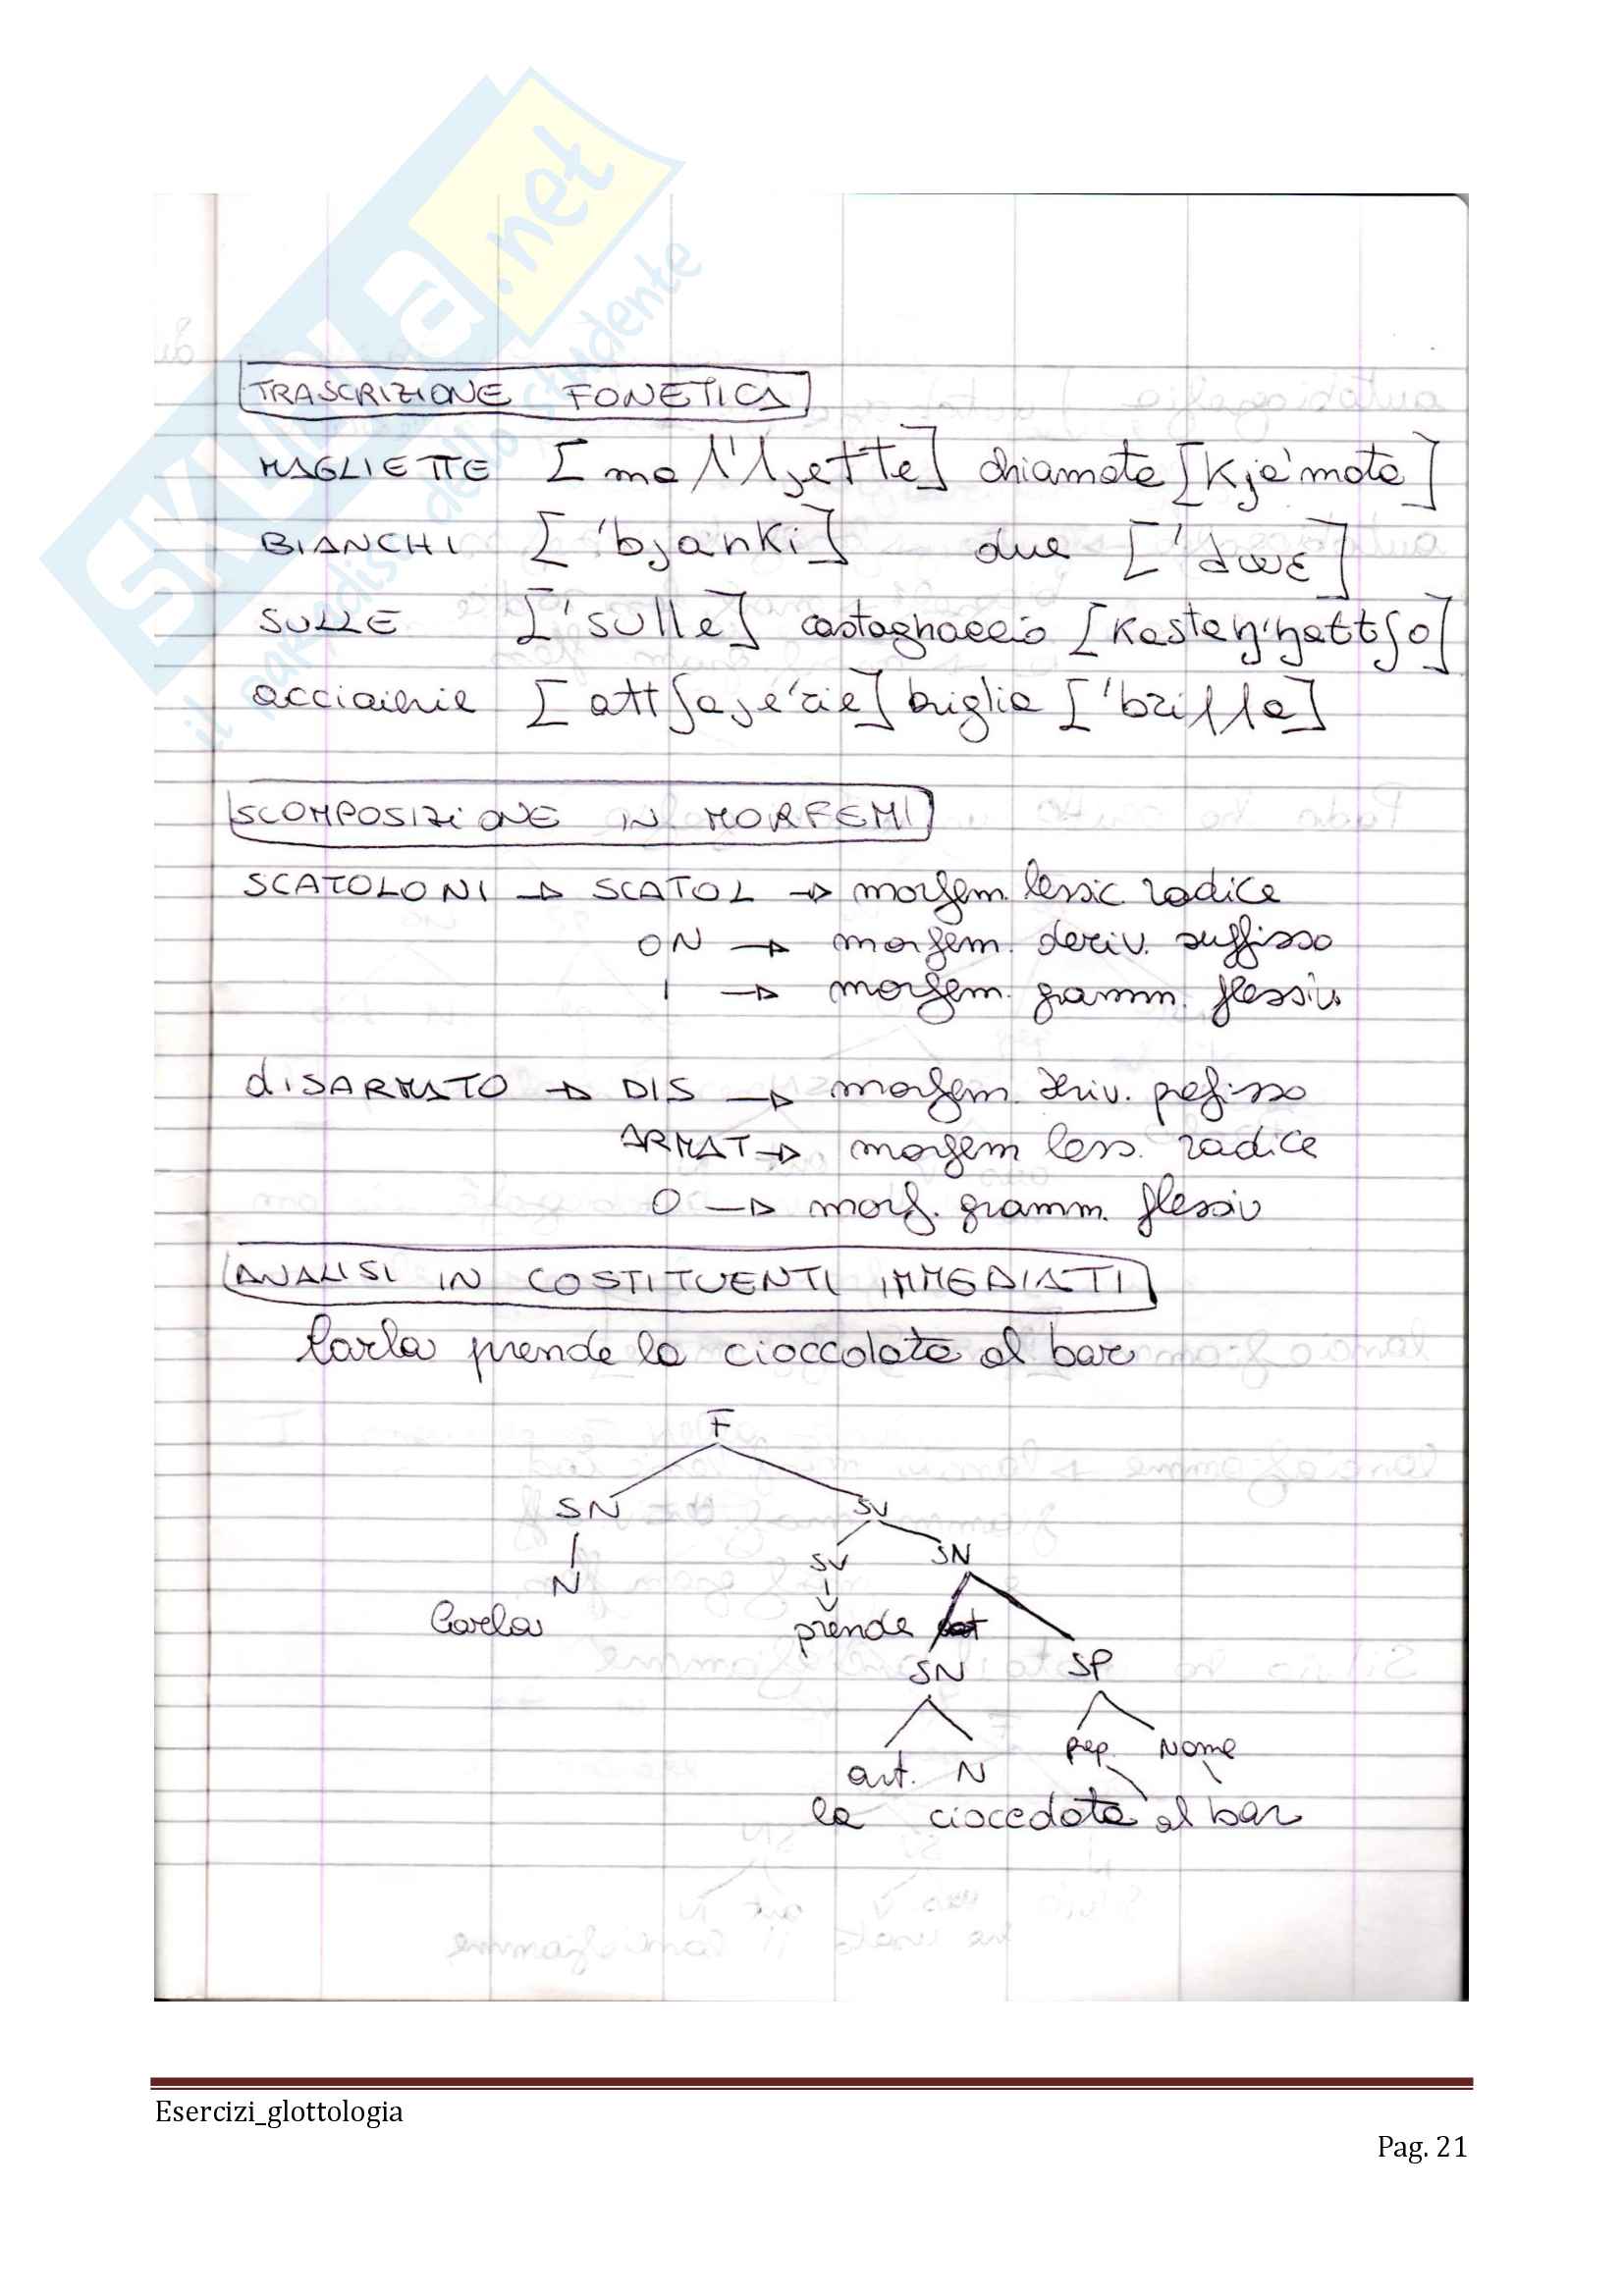 SKUOLA.net
il paradiso dello studente
TRASCRIZIONE FONETICA
MAGLIETTE [maʎ'ʎjette] chiamata [Kja'mata]
BIANCHI ['bjanKi] due ['duɛ]
SULLE ['sulle] castagnaccio [Kastaɲ'ɲattʃo]
acciaierie [attʃaje'rie] briglia ['briʎʎa]
SCOMPOSIZIONE IN MORFEMI
SCATOLONI → SCATOL → morfem. lessic. radice
ON → morfem. deriv. suffisso
I → morfem. gramm. flessiv.
dISARMATO → DIS → morfem. deriv. prefisso
ARMAT → morfem less. radice
O → morf. gramm. flessiv
ANALISI IN COSTITUENTI IMMEDIATI
Carla prende la cioccolata al bar
F
SN SV
SV SN
N
Carla prende
SN SP
prep. Nome
art. N
la cioccolata al bar
Esercizi_glottologia
Pag. 21